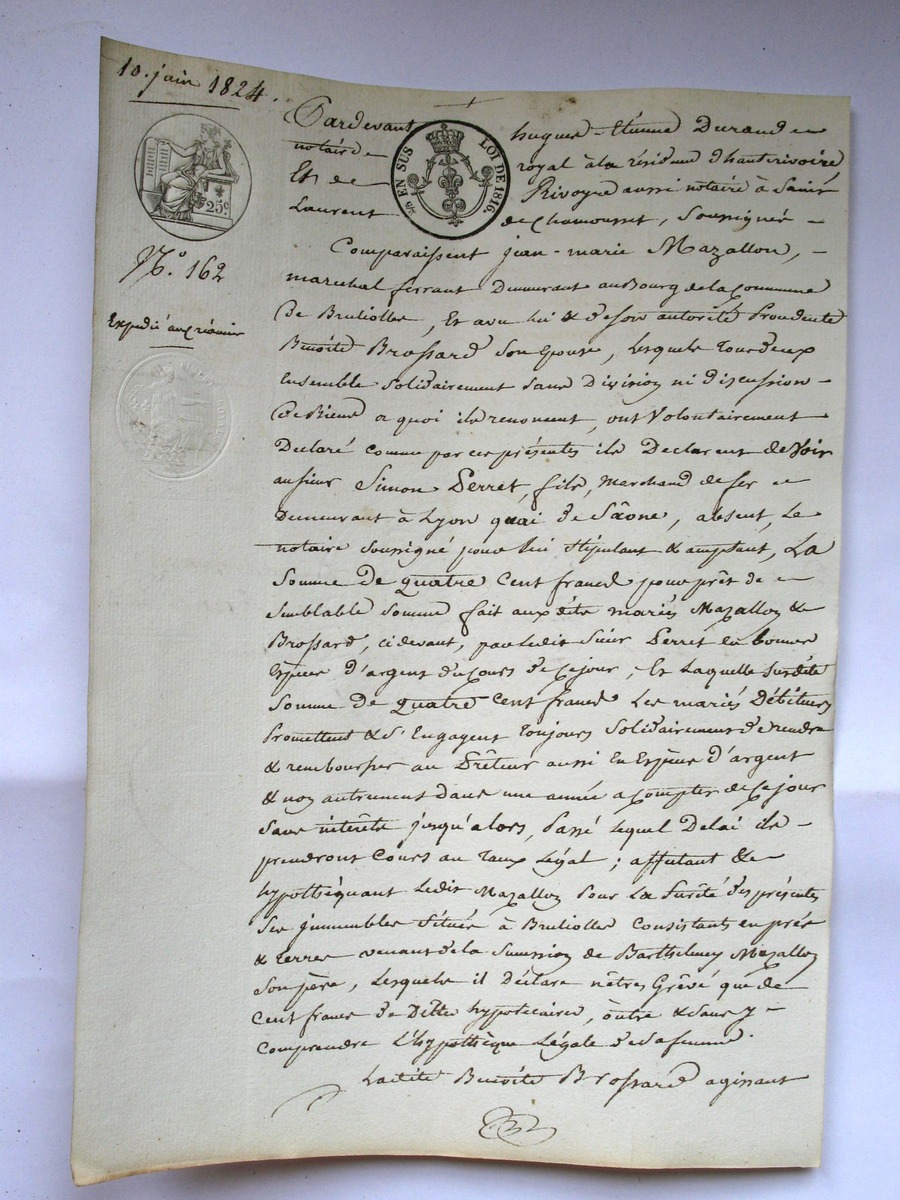 10. juin 1824.
Pardevant hugues-Etienne Durand
notaire royal à la résidence d'hauterivoire
Et de Rivoyre aussi notaire à Saint
Laurent de Chamousset, Soussignés
EN SUS LOI DE 1816.
25c
N.° 162
Expedié au créancier
Comparaissent jean-marie Mazallon,
marechal ferrant Demeurant au Bourg de la Commune
de Brullolles, Et avec lui & de son autorité Procedente
Benoite Brossard son Epouse, lesquels tous deux
Ensemble Solidairement Sans Division ni discussion
de Biens a quoi ils renoncent, ont Volontairement
Declaré comme par ces présentes ils Declarent devoir
au sieur Simon Perret, fils, marchand de fer
Demeurant à Lyon quai de Sâone, absent, Le
notaire soussigné pour lui Stipulant & acceptant, La
Somme De quatre Cent francs pour prêt de
Semblable Somme fait aux dits mariés Mazallon &
Brossard, ci devant, par ledit Sieur Perret en bonnes
Espèces d'argent du Cours de Ce jour, Et Laquelle Susdite
Somme De quatre Cent francs Les mariés Débiteurs
Promettent & S'Engagent Toujours Solidairement de rendre
& rembourser au Prêteur aussi En Espèces D'argent
& non autrement Dans une année a compter de Ce jour
Sans intérêts jusqu'alors, Passé lequel Delai ils
prendront Cours au Taux Légal ; affectant &
hypothéquant Ledit Mazallon Pour La Sureté des présentes
Ses jmmeubles Situés à Brullolles Consistants en prés
& Terres venant de la Succession de Barthelemy Mazallon
Son père, Lesquels il déclare n'êtres Grêvé que de
Cent francs de Dette hypotécaires, outre & sans y
Comprendre L'hypothèque Légale de Sa femme.
Ladite Benoite Brossard agissant